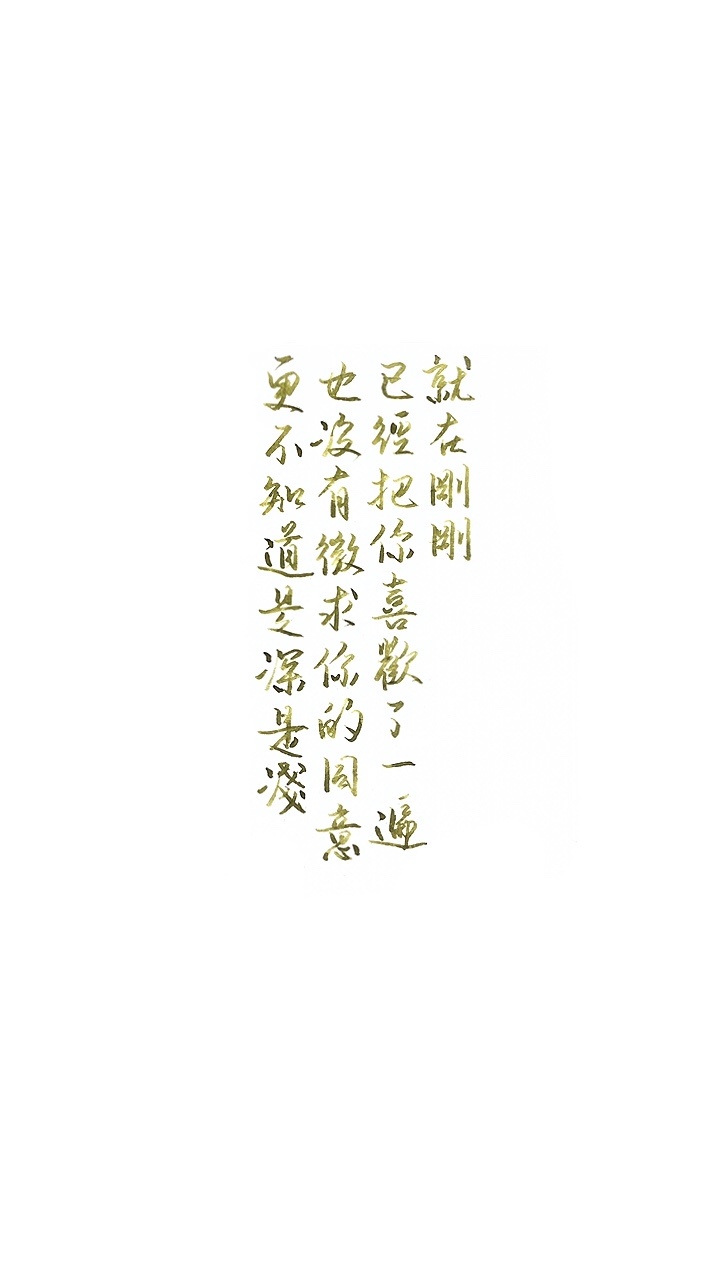 就在剛剛
已經把你喜歡了一遍
也没有徵求你的同意
更不知道是深是淺